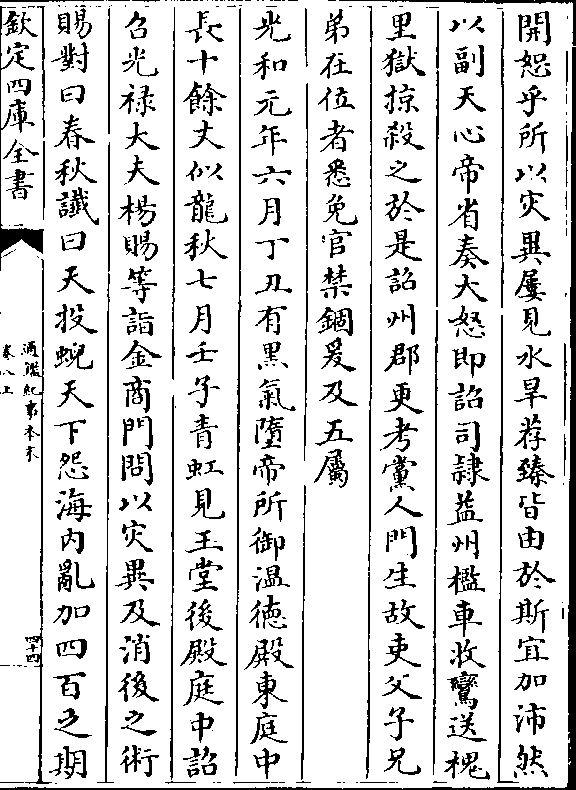 開恕乎所以灾異屢見水旱荐臻皆由於斯宜加沛然
以副天心帝省奏大怒即詔司隷益州檻車收鸞送槐
里獄掠殺之於是詔州郡更考黨人門生故吏父子兄
弟在位者悉免官禁錮爰及五屬
光和元年六月丁丑有黒氣墮帝所御温徳殿東庭中
長十餘丈似龍秋七月壬子青虹見玉堂後殿庭中詔
召光禄大夫楊賜等詣金商門問以灾異及消復之術
賜對曰春秋讖曰天投蜺天下怨海内亂加四百之期
欽定四庫全書
通鑑紀事本末
卷八上
四十四